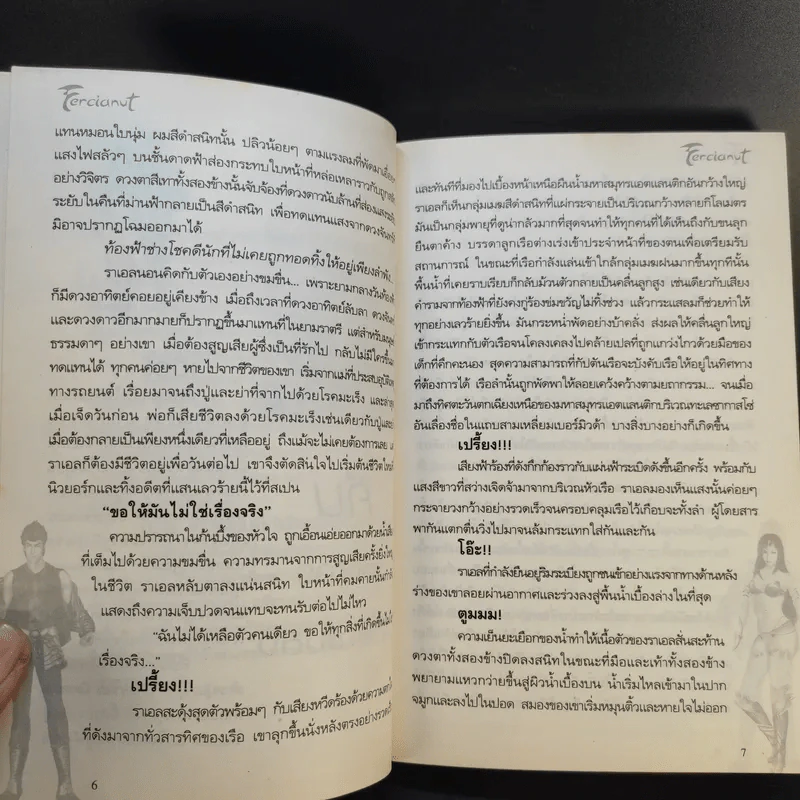 Fercianut
แทนหมอนใบนุ่ม ผมสีดำสนิทนั้น ปลิวน้อยๆ ตามแรงลมที่พัดมาเอื่อยๆ
แสงไฟสลัวๆ บนชั้นดาดฟ้าส่องกระทบใบหน้าที่หล่อเหลาราวกับถูก
อย่างวิจิตร ดวงตาสีเทาทั้งสองข้างนั้นจับจ้องที่ดวงดาวนับล้านที่ส่อง
ระยับในคืนที่ม่านฟ้ากลายเป็นสีดำสนิท เพื่อทดแทนแสงจากดวงจันทร์ที่
มิอาจปรากฏโฉมออกมาได้
ท้องฟ้าช่างโชคดีนักที่ไม่เคยถูกทอดทิ้งให้อยู่เพียงลำพัง
ราเอลนอนคิดกับตัวเองอย่างขมขื่น... เพราะยามกลางวันท้องฟ้า
ก็มีดวงอาทิตย์คอยอยู่เคียงข้าง เมื่อถึงเวลาที่ดวงอาทิตย์ลับลา ดวงจันทร์
และดวงดาวอีกมากมายก็ปรากฏขึ้นมาแทนที่ในยามราตรี แต่สำหรับมนุษย์
ธรรมดาๆ อย่างเขา เมื่อต้องสูญเสียผู้ซึ่งเป็นที่รักไป กลับไม่มีใครขึ้นมา
ทดแทนได้ ทุกคนค่อยๆ หายไปจากชีวิตของเขา เริ่มจากแม่ที่ประสบอุบัติเหตุ
ทางรถยนต์ เรื่อยมาจนถึงปู่และย่าที่จากไปด้วยโรคมะเร็ง และล่าสุด
เมื่อเจ็ดวันก่อน พ่อก็เสียชีวิตลงด้วยโรคมะเร็งเช่นเดียวกับปู่และย่า
เมื่อต้องกลายเป็นเพียงหนึ่งเดียวที่เหลืออยู่ ถึงแม้จะไม่เคยต้องการเลย แต่
ราเอลก็ต้องมีชีวิตอยู่เพื่อวันต่อไป เขาจึงตัดสินใจไปเริ่มต้นชีวิตใหม่ที่
นิวยอร์กและทิ้งอดีตที่แสนเลวร้ายนี้ไว้ที่สเปน
“ขอให้มันไม่ใช่เรื่องจริง”
ความปรารถนาในก้นบึ้งของหัวใจ ถูกเอื้อนเอ่ยออกมาด้วยน้ำเสียง
ที่เต็มไปด้วยความขมขื่น ความทรมานจากการสูญเสียครั้งยิ่งใหญ่
ในชีวิต ราเอลหลับตาลงแน่นสนิท ใบหน้าที่คมคายนั้น
แสดงถึงความเจ็บปวดจนแทบจะทนรับต่อไปไม่ไหว
“ฉันไม่ได้เหลือตัวคนเดียว ขอให้ทุกสิ่งที่เกิดขึ้นไม่ใช่
เรื่องจริง...”
เปรี้ยง!!!
ราเอลสะดุ้งสุดตัวพร้อมๆ กับเสียงหวีดร้องด้วยความตกใจ
ที่ดังมาจากทั่วสารทิศของเรือ เขาลุกขึ้นนั่งหลังตรงอย่างรวดเร็ว
6
Fercianut
และทันทีที่มองไปเบื้องหน้าเหนือผืนน้ำมหาสมุทรแอตแลนติกอันกว้างใหญ่
ราเอลก็เห็นกลุ่มเมฆสีดำสนิทที่แผ่กระจายเป็นบริเวณกว้างหลายกิโลเมตร
มันเป็นกลุ่มพายุที่ดูน่ากลัวมากที่สุดจนทำให้ทุกคนที่ได้เห็นถึงกับขนลุก
ยืนตาค้าง บรรดาลูกเรือต่างเร่งเข้าประจำหน้าที่ของตนเพื่อเตรียมรับ
สถานการณ์ ในขณะที่เรือกำลังแล่นเข้าใกล้กลุ่มเมฆฝนมากขึ้นทุกทีนั้น
พื้นน้ำที่เคยราบเรียบก็กลับม้วนตัวกลายเป็นคลื่นลูกสูง เช่นเดียวกับเสียง
คำรามจากท้องฟ้าที่ยังคงกู่ร้องข่มขวัญไม่ทิ้งช่วง แล้วกระแสลมก็ช่วยทำให้
ทุกอย่างเลวร้ายยิ่งขึ้น มันกระหน่ำพัดอย่างบ้าคลั่ง ส่งผลให้คลื่นลูกใหญ่
เข้ากระแทกกับตัวเรือจนโคลงเคลงไปคล้ายเปลที่ถูกแกว่งไกวด้วยมือของ
เด็กที่คึกคะนอง สุดความสามารถที่กัปตันเรือจะบังคับเรือให้อยู่ในทิศทาง
ที่ต้องการได้ เรือลำนั้นถูกพัดพาให้ลอยเคว้งคว้างตามยถากรรม... จนเมื่อ
มาถึงทิศตะวันตกเฉียงเหนือของมหาสมุทรแอตแลนติกบริเวณทะเลซากาสโซ่
อันเลื่องชื่อในแถบสามเหลี่ยมเบอร์มิวด้า บางสิ่งบางอย่างก็เกิดขึ้น
เปรี้ยง!!!
เสียงฟ้าร้องที่ดังกึกก้องราวกับแผ่นฟ้าระเบิดดังขึ้นอีกครั้ง พร้อมกับ
แสงสีขาวที่สว่างเจิดจ้ามาจากบริเวณหัวเรือ ราเอลมองเห็นแสงนั้นค่อยๆ
กระจายวงกว้างอย่างรวดเร็วจนครอบคลุมเรือไว้เกือบจะทั้งลำ ผู้โดยสาร
พากันแตกตื่นวิ่งไปมาจนล้มกระแทกใส่กันและกัน
โอ๊ะ!!
ราเอลที่กำลังยืนอยู่ริมระเบียงถูกชนเข้าอย่างแรงจากทางด้านหลัง
ร่างของเขาลอยผ่านอากาศและร่วงลงสู่พื้นน้ำเบื้องล่างในที่สุด
ตูมมม!
ความเย็นยะเยือกของน้ำทำให้เนื้อตัวของราเอลสั่นสะท้าน
ดวงตาทั้งสองข้างปิดลงสนิทในขณะที่มือและเท้าทั้งสองข้าง
พยายามแหวกว่ายขึ้นสู่ผิวน้ำเบื้องบน น้ำเริ่มไหลเข้ามาในปาก
จมูกและลงไปในปอด สมองของเขาเริ่มหมุนติ้วและหายใจไม่ออก
7